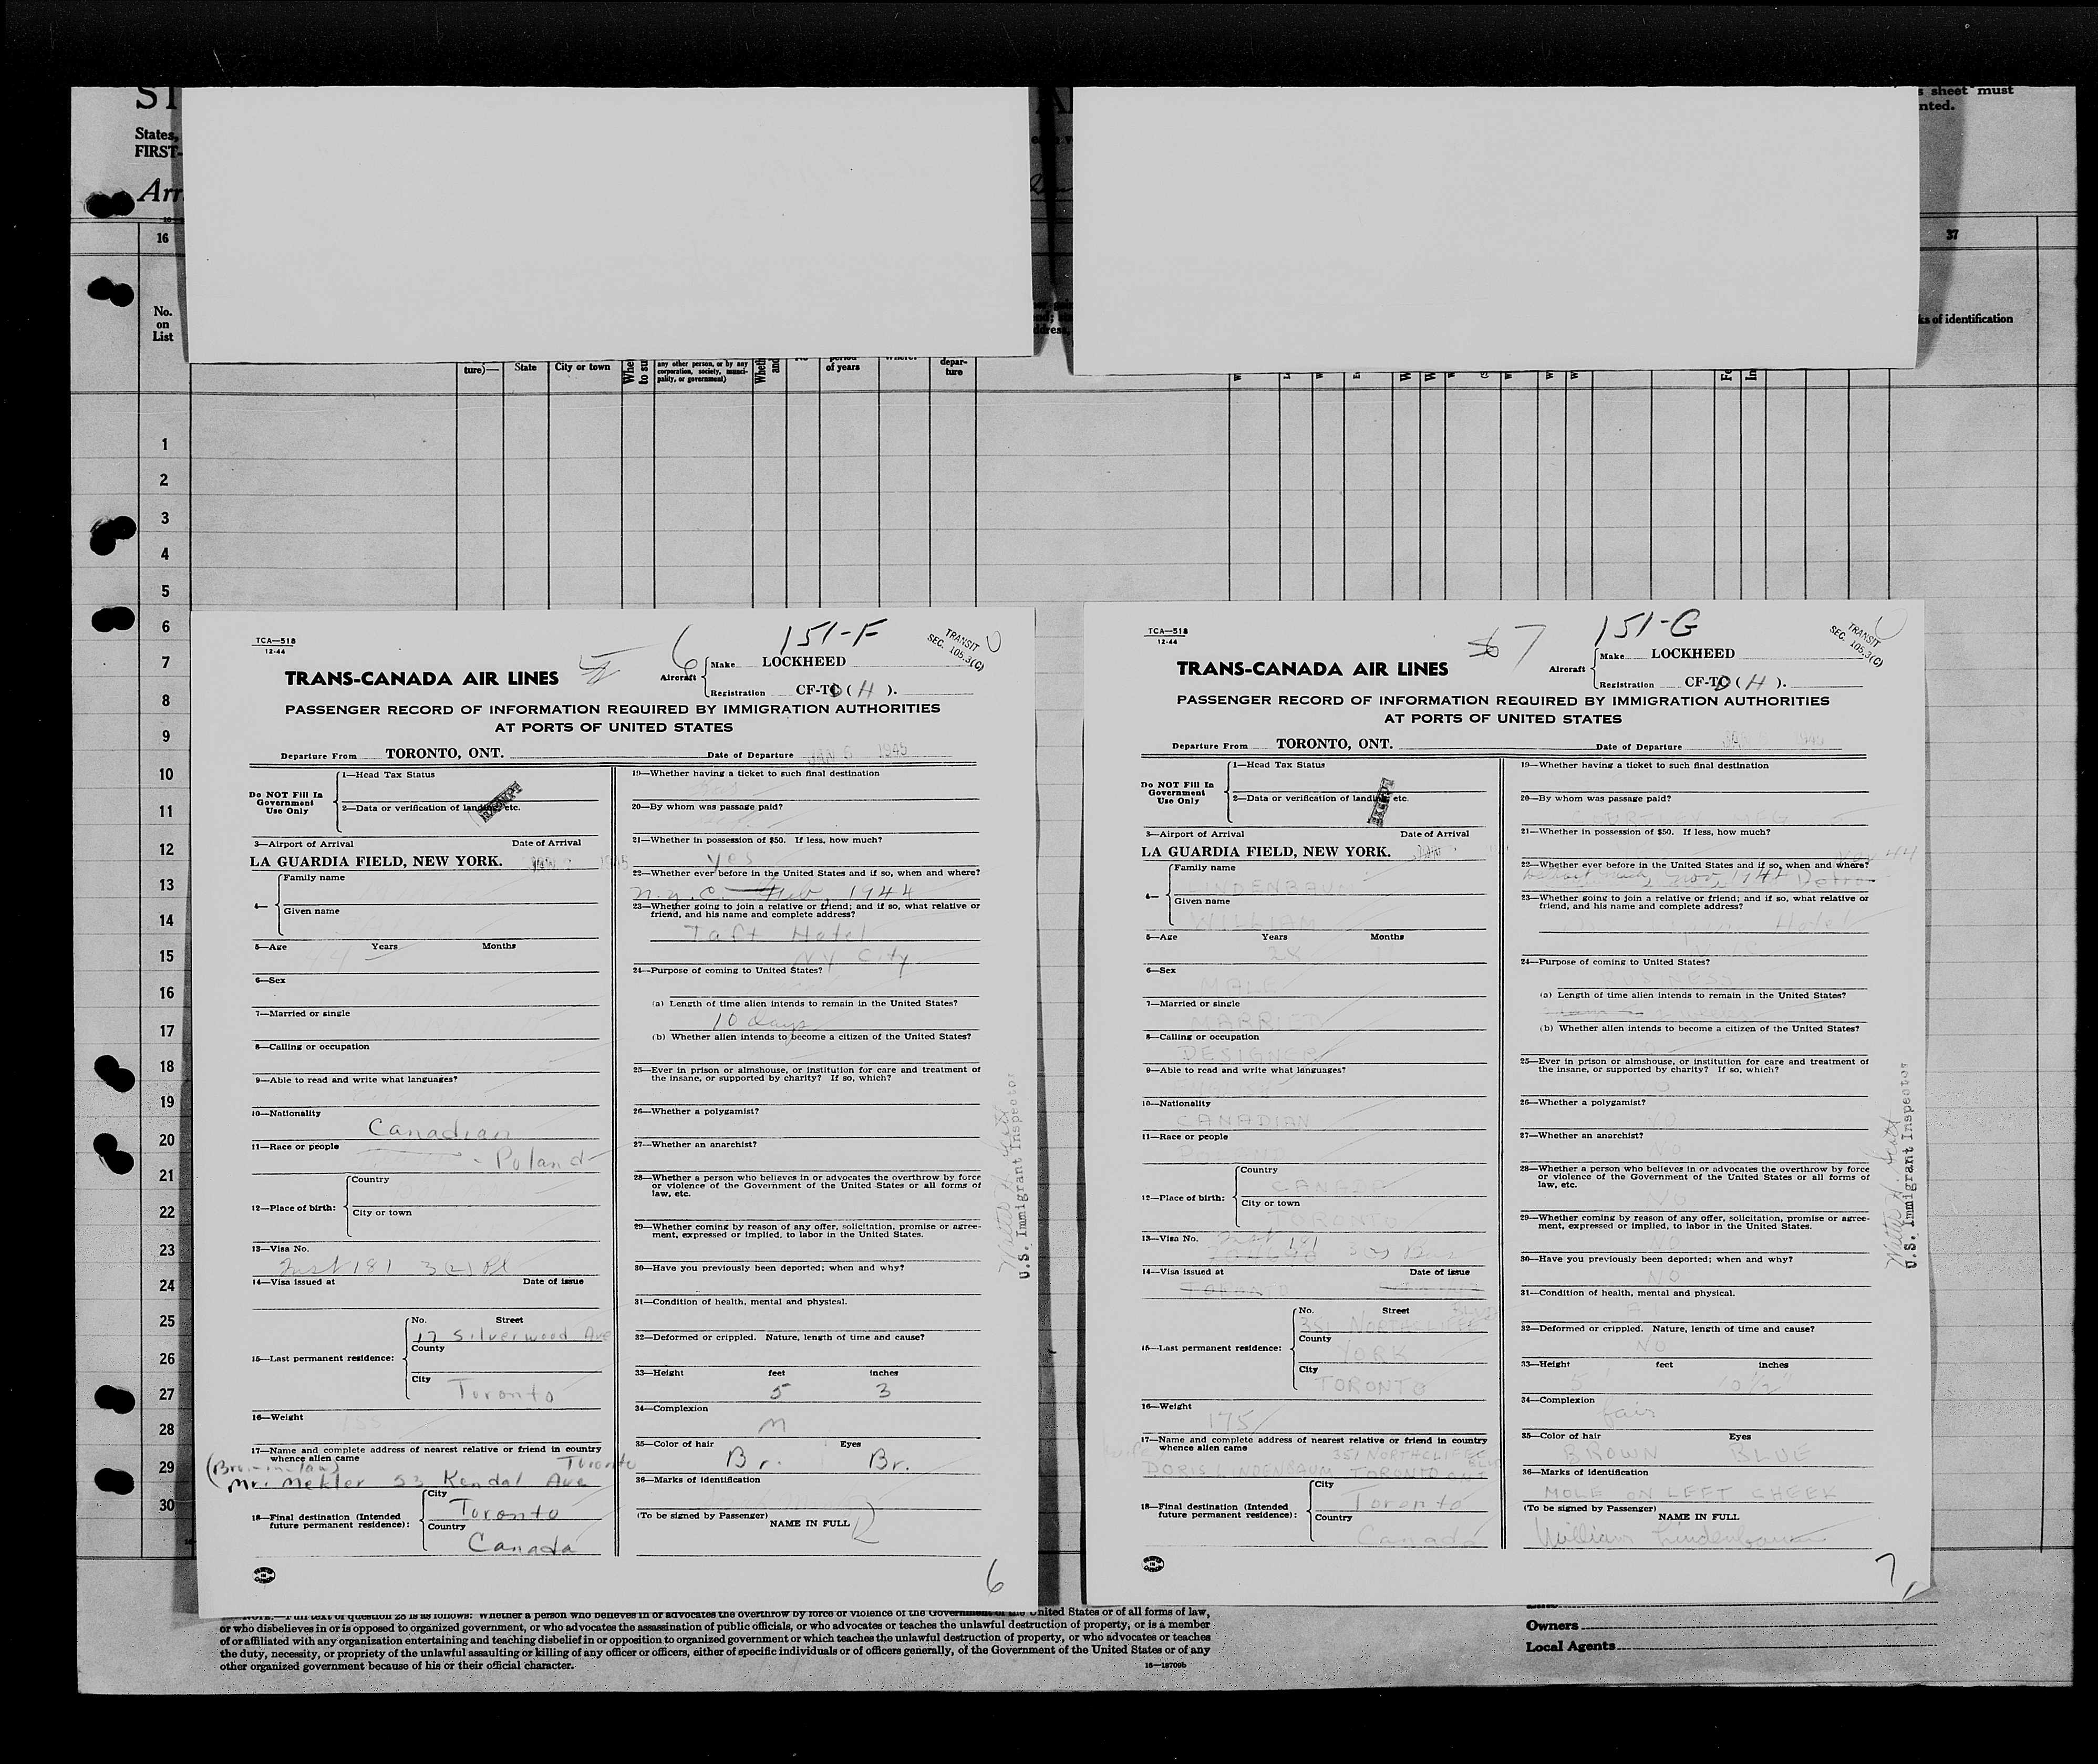 ST
States,
FIRST-
Arr
s sheet must
nted.
16
37
No.
on
List
ks of identification
ture)—
State
City or town
to su
any other person, or by any
corporation, society, munici-
pality, or government)
and
period
of years
depar-
ture
1
2
3
4
5
6
7
8
9
10
11
12
13
14
15
16
17
18
19
20
21
22
23
24
25
26
27
28
29
30
TCA—518
12-44
6
151-F
TRANSIT
SEC. 105.3(C)
TRANS-CANADA AIR LINES
Aircraft
Make LOCKHEED
Registration CF-TC (H).
PASSENGER RECORD OF INFORMATION REQUIRED BY IMMIGRATION AUTHORITIES
AT PORTS OF UNITED STATES
Departure From TORONTO, ONT. Date of Departure JAN 1945
Do NOT Fill In
Government
Use Only
1—Head Tax Status
2—Data or verification of landing, etc.
3—Airport of Arrival Date of Arrival
LA GUARDIA FIELD, NEW YORK. JAN 1945
4—
Family name
Given name
5—Age Years Months
44
6—Sex
7—Married or single
8—Calling or occupation
9—Able to read and write what languages?
10—Nationality
Canadian
11—Race or people
- Poland
12—Place of birth:
Country
City or town
13—Visa No.
Inst 181 3(2) Pl
14—Visa issued at Date of issue
15—Last permanent residence:
No. Street
17 Silverwood Ave
County
City
Toronto
16—Weight
155
17—Name and complete address of nearest relative or friend in country
whence alien came
(Bro-in-law) Toronto
Mr. Mekler 53 Kendal Ave
18—Final destination (Intended
future permanent residence):
City
Toronto
Country
Canada
19—Whether having a ticket to such final destination
20—By whom was passage paid?
21—Whether in possession of $50. If less, how much?
yes
22—Whether ever before in the United States and if so, when and where?
N.Y.C. 1944
23—Whether going to join a relative or friend; and if so, what relative or
friend, and his name and complete address?
Taft Hotel
NY City
24—Purpose of coming to United States?
(a) Length of time alien intends to remain in the United States?
10 days
(b) Whether alien intends to become a citizen of the United States?
25—Ever in prison or almshouse, or institution for care and treatment of
the insane, or supported by charity? If so, which?
26—Whether a polygamist?
27—Whether an anarchist?
28—Whether a person who believes in or advocates the overthrow by force
or violence of the Government of the United States or all forms of
law, etc.
29—Whether coming by reason of any offer, solicitation, promise or agree-
ment, expressed or implied, to labor in the United States.
30—Have you previously been deported; when and why?
31—Condition of health, mental and physical.
32—Deformed or crippled. Nature, length of time and cause?
33—Height feet inches
5 3
34—Complexion
M
35—Color of hair Eyes
Br. Br.
36—Marks of identification
(To be signed by Passenger)
NAME IN FULL
U.S. Immigrant Inspector
6
TCA—518
12-44
7
151-G
TRANSIT
SEC. 105.3(C)
TRANS-CANADA AIR LINES
Aircraft
Make LOCKHEED
Registration CF-TC (H).
PASSENGER RECORD OF INFORMATION REQUIRED BY IMMIGRATION AUTHORITIES
AT PORTS OF UNITED STATES
Departure From TORONTO, ONT. Date of Departure
Do NOT Fill In
Government
Use Only
1—Head Tax Status
2—Data or verification of landing, etc.
3—Airport of Arrival Date of Arrival
LA GUARDIA FIELD, NEW YORK. JAN
4—
Family name
LINDENBAUM
Given name
WILLIAM
5—Age Years Months
28
6—Sex
MALE
7—Married or single
MARRIED
8—Calling or occupation
DESIGNER
9—Able to read and write what languages?
10—Nationality
CANADIAN
11—Race or people
POLAND
12—Place of birth:
Country
CANADA
City or town
TORONTO
13—Visa No.
Inst 181
14—Visa issued at Date of issue
TORONTO
15—Last permanent residence:
No. Street
351 NORTHCLIFFE BLVD
County
YORK
City
TORONTO
16—Weight
175
17—Name and complete address of nearest relative or friend in country
whence alien came
351 NORTHCLIFFE BLVD
DORIS LINDENBAUM TORONTO ONT
18—Final destination (Intended
future permanent residence):
City
Toronto
Country
Canada
19—Whether having a ticket to such final destination
20—By whom was passage paid?
MFG
21—Whether in possession of $50. If less, how much?
22—Whether ever before in the United States and if so, when and where?
Detroit Mich, Nov, 1944
23—Whether going to join a relative or friend; and if so, what relative or
friend, and his name and complete address?
Hotel
24—Purpose of coming to United States?
BUSINESS
(a) Length of time alien intends to remain in the United States?
(b) Whether alien intends to become a citizen of the United States?
25—Ever in prison or almshouse, or institution for care and treatment of
the insane, or supported by charity? If so, which?
26—Whether a polygamist?
NO
27—Whether an anarchist?
NO
28—Whether a person who believes in or advocates the overthrow by force
or violence of the Government of the United States or all forms of
law, etc.
NO
29—Whether coming by reason of any offer, solicitation, promise or agree-
ment, expressed or implied, to labor in the United States.
NO
30—Have you previously been deported; when and why?
NO
31—Condition of health, mental and physical.
32—Deformed or crippled. Nature, length of time and cause?
NO
33—Height feet inches
5 10 1/2
34—Complexion
fair
35—Color of hair Eyes
BROWN BLUE
36—Marks of identification
MOLE ON LEFT CHEEK
(To be signed by Passenger)
NAME IN FULL
William Lindenbaum
U.S. Immigrant Inspector
7
NOTE.—Full text of question 28 is as follows: Whether a person who believes in or advocates the overthrow by force or violence of the Government of the United States or of all forms of law,
or who disbelieves in or is opposed to organized government, or who advocates the assassination of public officials, or who advocates or teaches the unlawful destruction of property, or is a member
of or affiliated with any organization entertaining and teaching disbelief in or opposition to organized government or which teaches the unlawful destruction of property, or who advocates or teaches
the duty, necessity, or propriety of the unlawful assaulting or killing of any officer or officers, either of specific individuals or of officers generally, of the Government of the United States or of any
other organized government because of his or their official character.
16—18709b
Owners
Local Agents